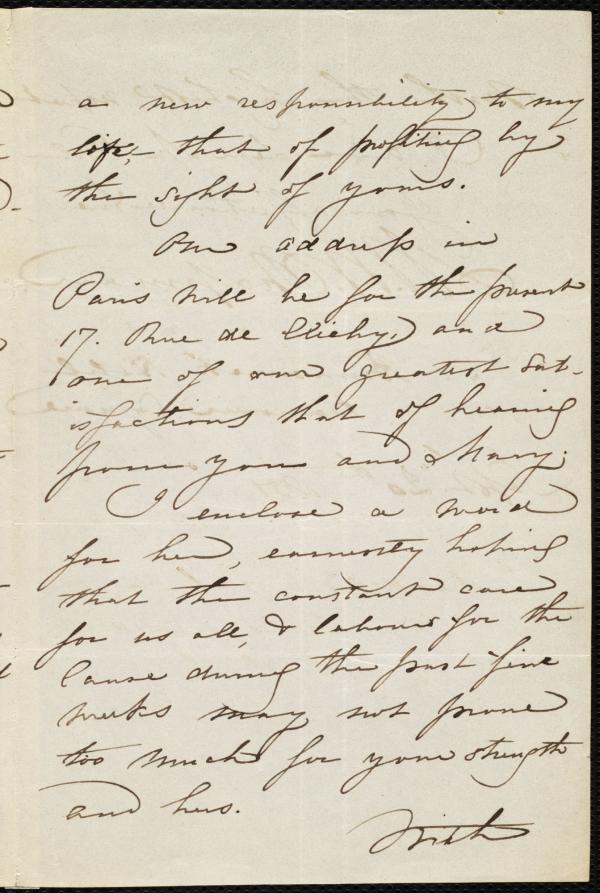 a new responsibility to my
life, – that of profiting by
the sight of yours.
Our address in
Paris will be for the present
17. Rue de Clichy, and
one of our greatest sat-
isfactions that of hearing
from you and Mary.
I enclose a word
for her, earnestly hoping
that the constant care
for us all, & labour for the
Cause during the past five
weeks may not prove
too much for your strength
and hers.
With